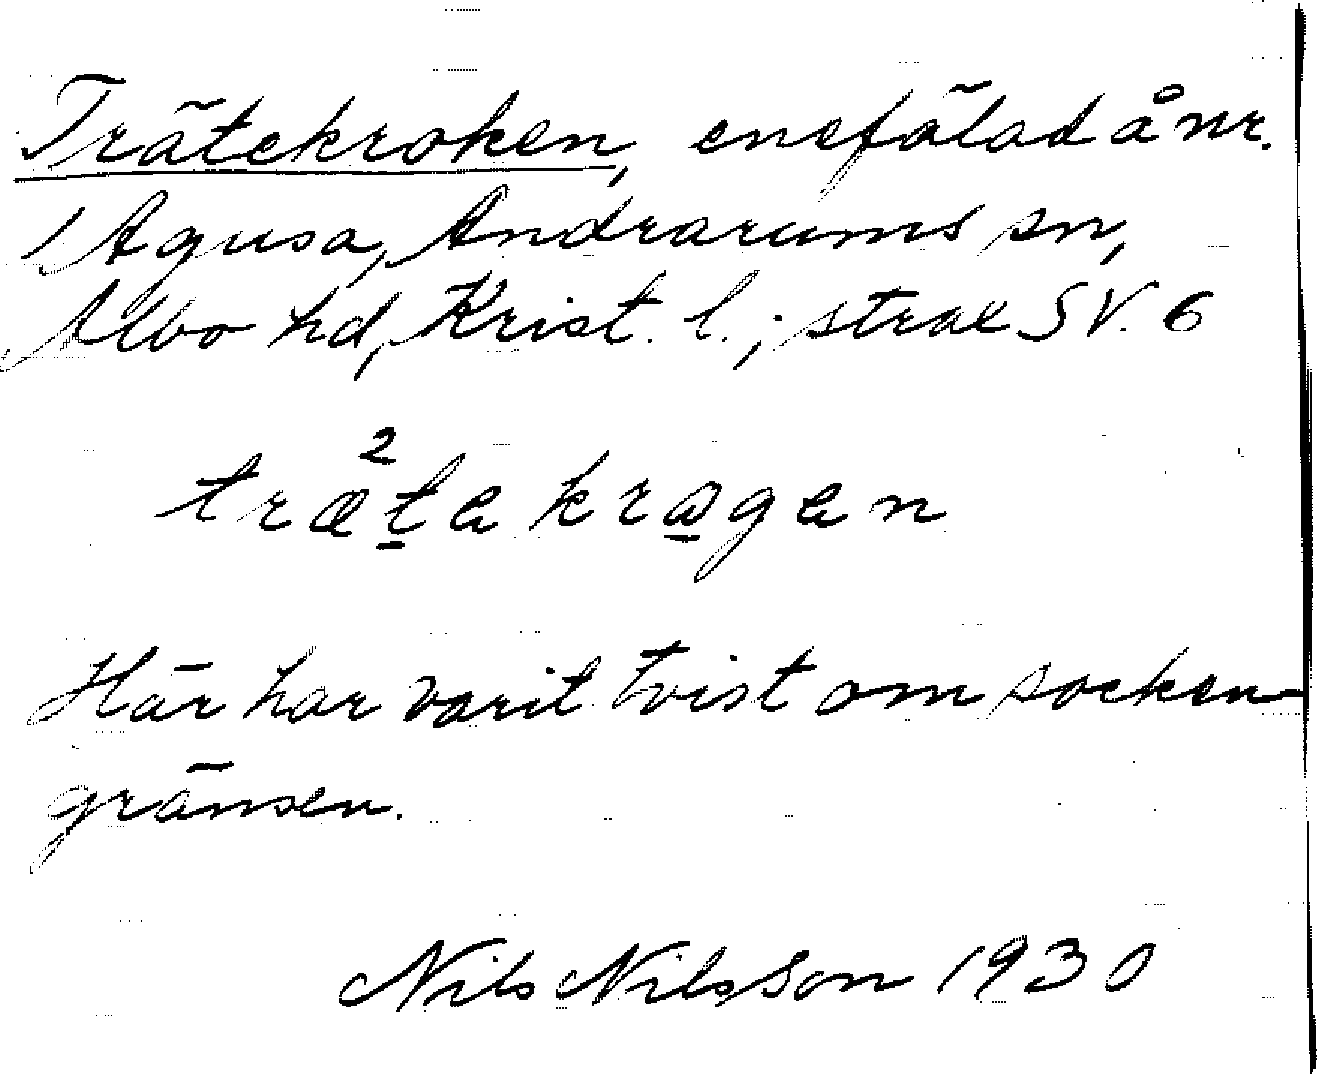 Trätekroken, enefälad å nr.
1 Agusa, Andrarums sn,
Albo hd, Krist. l.; strax SV. 6
træ²ta kragan
Här har varit tvist om socken-
gränsen.
Nils Nilsson 1930